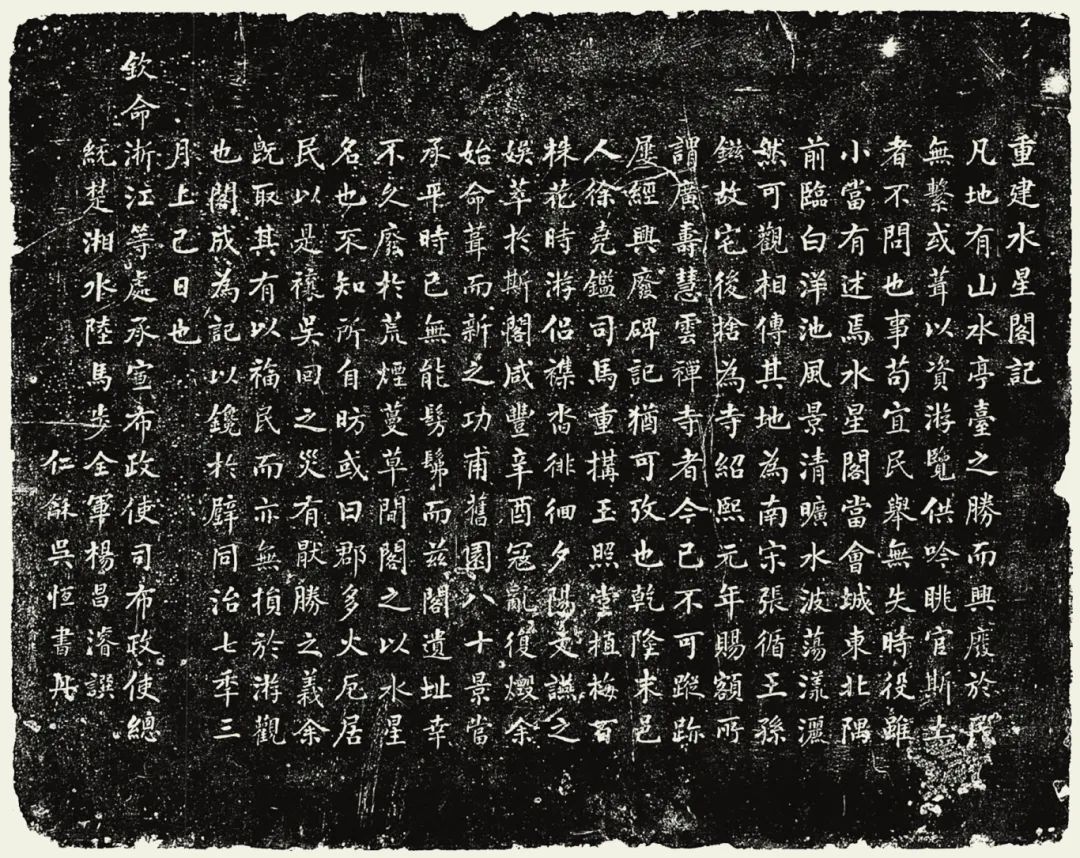 重建水星閣記
凡地有山水亭臺之勝而興廢於民
無繫或葺以資游覽供吟眺官斯土
者不問也事苟宜民舉無失時役雖
小當有述焉水星閣當會城東北隅
前臨白洋池風景清曠水波蕩漾灑
然可觀相傳其地為南宋張循王孫
鎡故宅後捨為寺紹熙元年賜額所
謂廣壽慧雲禪寺者今已不可蹤跡
屢經興廢碑記猶可攷也乾隆末邑
人徐堯鑑司馬重搆玉照堂植梅百
株花時游侶襍沓徘徊夕陽文讌之
娛萃於斯閣咸豐辛酉寇亂復燬余
始命葺而新之功甫舊園八十景當
承平時已無能髣髴而茲閣遺址幸
不久廢於荒煙蔓草間閣之以水星
名也不知所自昉或曰郡多火厄居
民以是禳吳回之災有厭勝之義余
旣取其有以福民而亦無損於游觀
也閣成為記以鑱於壁同治七秊三
月上巳日也
欽命浙江等處承宣布政使司布政使總
統楚湘水陸馬步全軍楊昌濬譔
仁龢吳恒書丹